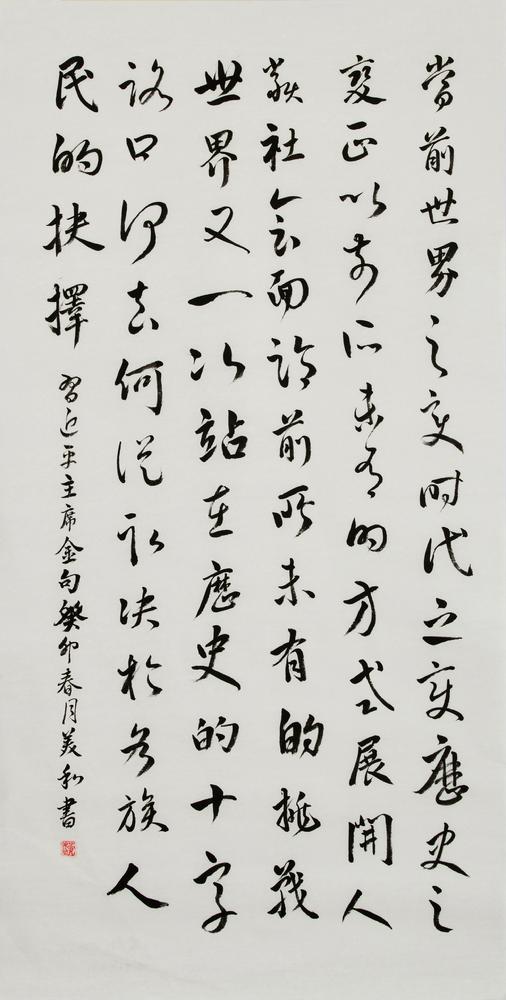 當前世界之變時代之變歷史之
變正以前所未有的方式展開人
類社會面臨前所未有的挑戰
世界又一次站在歷史的十字
路口何去何從取決於各族人
民的抉擇
習近平主席金句癸卯春月美和書